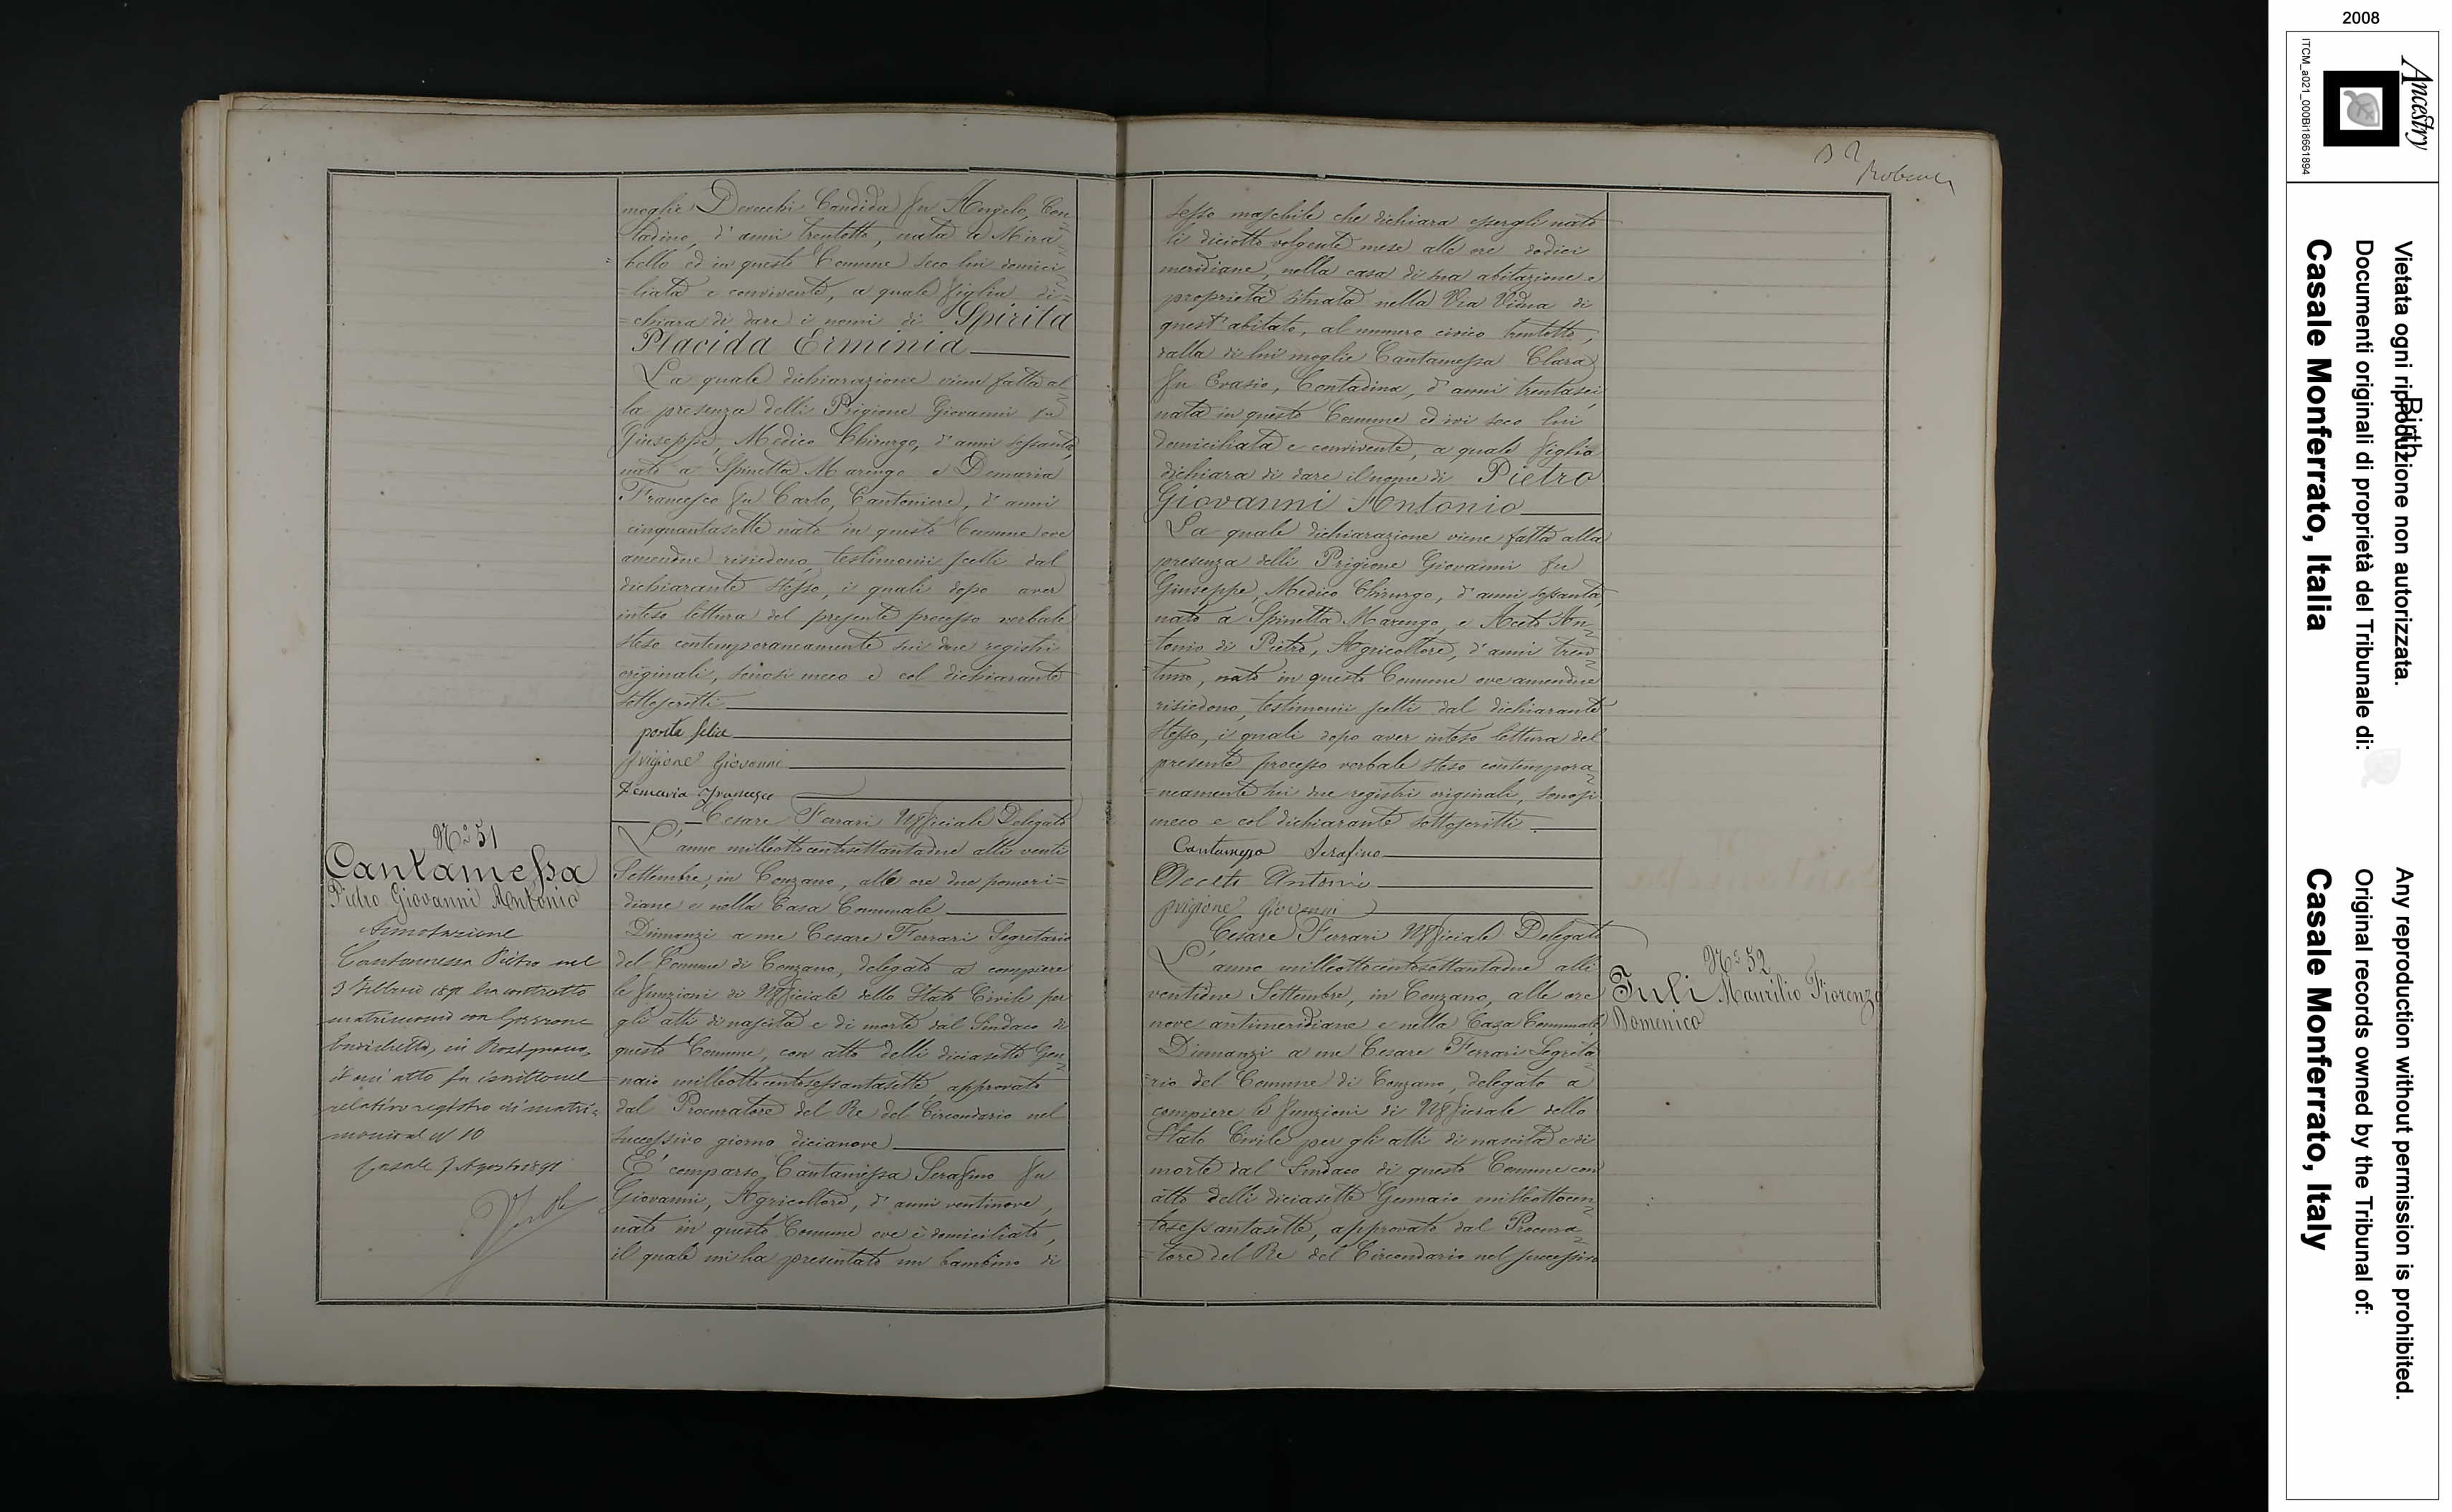 moglie Deve chi Candida fu Angelo, Con
tadina, d'anni trentotto, nata a Mira
=bello ed in questo Comune seco lui domici
=liata e convivente, a quale figlia di=
=chiara di dare i nomi di Spirita
Placida Erminia
La quale dichiarazione viene fatta al
la presenza delli Prigione Giovanni fu
Giuseppe, Medico Chirurgo, d'anni sessanta,
nato a Spinetta Marengo e Demaria
Francesco fu Carlo, Cantoniere, d'anni
cinquantasette nato in questo Comune ove
amendue risiedono, testimonii scelti dal
dichiarante stesso, i quali dopo aver
inteso lettura del presente processo verbale
steso contemporaneamente sui due registri
originali, sonosi meco e col dichiarante
sottoscritti
ponte felice
prigione Giovanni
Demaria Francesco
Cesare Ferrari Ufficiale Delegato
N.º 51
Cantamessa
Pietro Giovanni Antonio
Annotazione
Cantamessa Pietro nel
3 Febbraio 1891 ha contratto
matrimonio con
in Rosignano,
il cui atto fu iscritto nel
relativo registro di matri=
monio al N 10
Casale 7 Agosto 1891
L'anno milleottocentosettantadue alli venti
Settembre, in Conzano, alle ore due pomeri=
diane e nella Casa Comunale
Dinnanzi a me Cesare Ferrari Segretario
del Comune di Conzano, delegato a compiere
le funzioni di Ufficiale dello Stato Civile per
gli atti di nascita e di morte dal Sindaco di
questo Comune, con atto delli diciasette Gen
=naio milleottocentosessantasette, approvato
dal Procuratore del Re del Circondario nel
successivo giorno dicianove
E' comparso, Cantamessa Serafino fu
Giovanni, Agricoltore, d'anni ventinove,
nato in questo Comune ove è domiciliato,
il quale mi ha presentato un bambino di
sesso maschile che dichiara essergli nato
li diciotto volgente mese alle ore dodici
meridiane, nella casa di sua abitazione e
proprietà situata nella Via Vidua di
quest'abitato, al numero civico trentotto,
dalla di lui moglie Cantamessa Clara
fu Evasio, Contadina, d'anni trentasei,
nata in questo Comune ed ivi seco lui
domiciliata e convivente, a quale figlio
dichiara di dare il nome di Pietro
Giovanni Antonio
La quale dichiarazione viene fatta alla
presenza delli Prigione Giovanni fu
Giuseppe, Medico Chirurgo, d'anni sessanta,
nato a Spinetta Marengo, e Aceto An
=tonio di Pietro, Agricoltore, d'anni tren
=tuno, nato in questo Comune ove amendue
risiedono, testimonii scelti dal dichiarante
stesso, i quali dopo aver inteso lettura del
presente processo verbale steso contempora
=neamente sui due registri originali, sonosi
meco e col dichiarante sottoscritti
Cantamessa Serafino
Acceto Antonio
prigione Giovanni
Cesare Ferrari Ufficiale Delegato
N.º 52
Juli Maurilio Fiorenzo
Domenico
L'anno milleottocentosettantadue alli
ventidue Settembre, in Conzano, alle ore
nove antimeridiane e nella Casa Comunale
Dinnanzi a me Cesare Ferrari Segreta
=rio del Comune di Conzano, delegato a
compiere le funzioni di Ufficiale dello
Stato Civile per gli atti di nascita e di
morte dal Sindaco di questo Comune con
atto delli diciasette Gennaio milleottocen
=tosessantasette, approvato dal Procura
=tore del Re del Circondario nel successivo
2008
Ancestry
ITCM_a021_000Bi18661894
Birth
Vietata ogni riproduzione non autorizzata.
Documenti originali di proprietà del Tribunale di:
Casale Monferrato, Italia
Any reproduction without permission is prohibited.
Original records owned by the Tribunal of:
Casale Monferrato, Italy